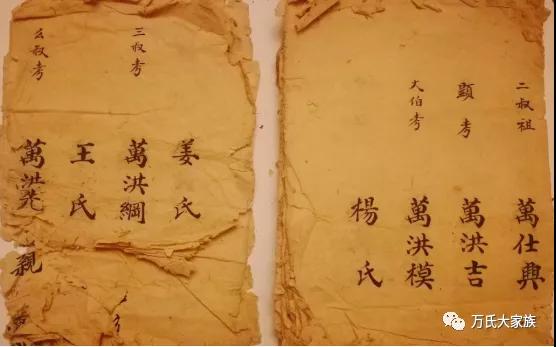 二叔祖
萬仕興
顯考
萬洪吉
大伯考
萬洪模
楊氏
姜氏
三叔考
萬洪綱
王氏
么叔考
萬洪
親
万氏大家族